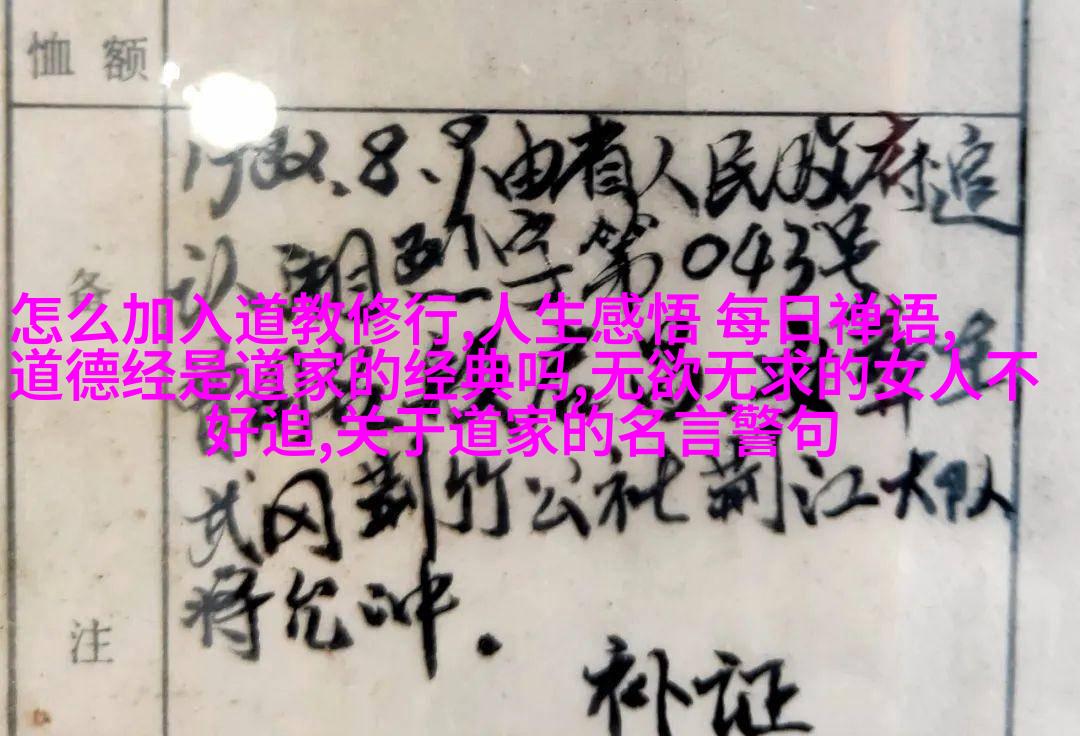 恤额
1982.8.9由省人民政府追
认湘烈字第043号
备
怎么加入道教修行,人生感悟 每日禅语,
道德经是道家的经典吗,无欲无求的女人不
好追,关于道家的名言警句
武冈荆竹公社荆江大队
蒋允冲.
注
补证